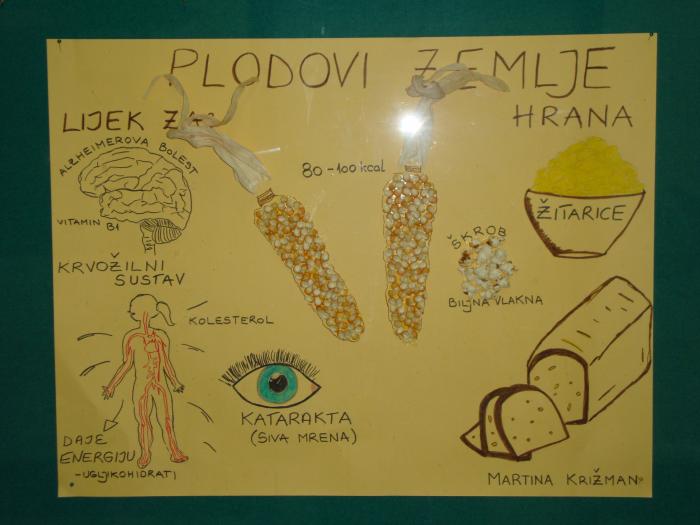 PLODOVI ZEMLJE
LIJEK ZA:
ALZHEIMEROVA BOLEST
VITAMIN B1
KRVOŽILNI
SUSTAV
KOLESTEROL
DAJE
ENERGIJU
-UGLJIKOHIDRATI
KATARAKTA
(SIVA MRENA)
80-100 kcal
HRANA
ŽITARICE
ŠKROB
BILJNA VLAKNA
MARTINA KRIŽMAN